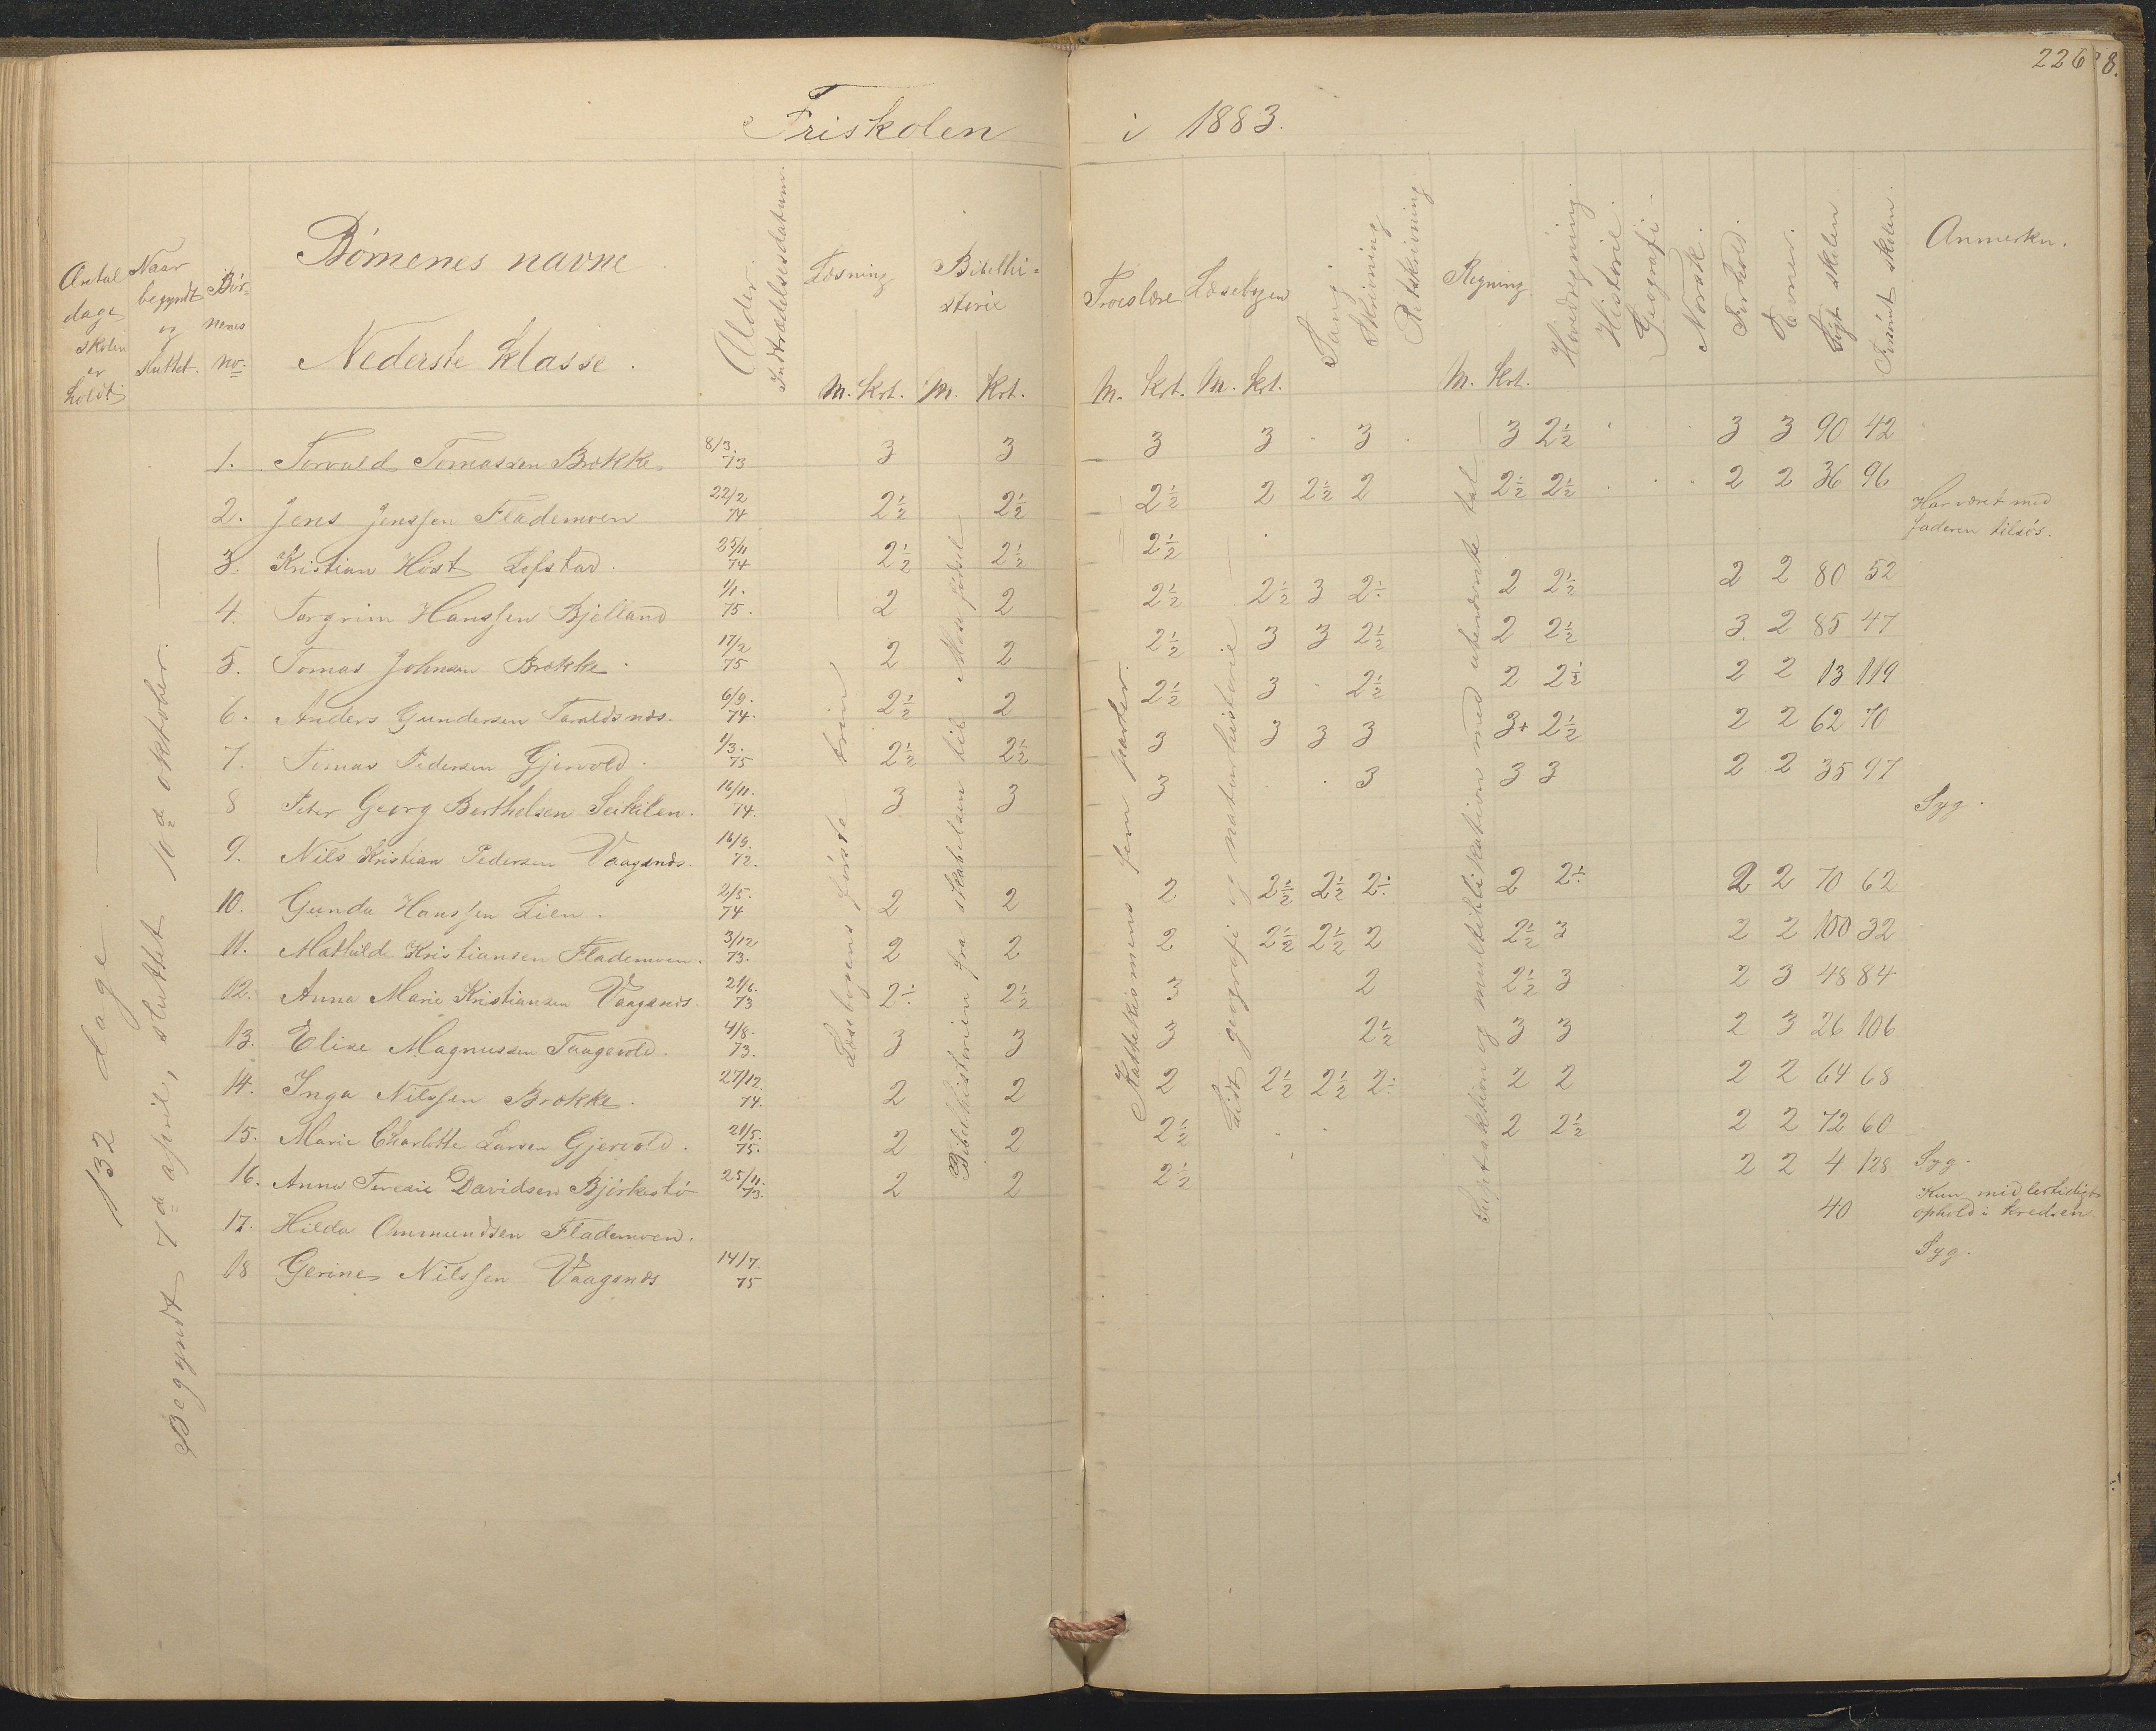 226 8.
Friskolen i 1883.
Antal dage skolen er holdt
Naar begyndt og sluttet.
Børnenes no.
Børnenes navne
Nederste klasse.
Alder.
Indtrædelsesdatum.
Læsning M. Krt.
Bibelhistorie M. Krt.
Troeslære M. Krt.
Læsebogen M. Krt.
Sang
Skrivning
Retskrivning
Regning M. Krt.
Hovedregning
Historie.
Geografi.
Norsk.
Forhold.
Evner.
Søgt skolen
Forsømt skolen.
Anmerkn.
132 dage
Begyndt 7d april, sluttet 10d oktober.
Læsebogens første trin
Bibelhistorien fra skabelsen til Mose fødsel
Katekismens fem parter.
Lidt geografi og naturhistorie
Subtraktion og multiplikation med ubenævnte tal
1. Torvald Tomassen Brække 8/3. 73 3 3 3 3 . 3 3 2½ 3 3 90 42
2. Jens Jenssen Flademoen 22/2 74 2½ 2½ 2½ 2 2½ 2 2½ 2½ 2 2 36 96
3. Kristian Høst Lofstad. 25/11 74 2½ 2½ 2½ Har været med faderen tilsøs.
4. Torgrim Hanssen Bjelland 1/1. 75. 2 2 2½ 2½ 3 2÷ 2 2½ 2 2 80 52
5. Tomas Johnsen Brække. 17/2 75 2 2 2½ 3 3 2½ 2 2½ 3 2 85 47
6. Anders Gundersen Taraldsnæs. 6/9. 74. 2½ 2 2½ 3 . 2½ 2 2½ 2 2 13 119
7. Tomas Pedersen Gjervold. 1/3. 75 2½ 2½ 3 3 3 3 3+ 2½ 2 2 62 70
8 Peter Georg Berthelsen 16/11. 74. 3 3 3 . 3 3 3 2 2 35 97
9. Nils Kristian Pedersen Vaagsnæs. 16/9. 72. Syg.
10. Gunda Hanssen Lien. 2/5. 74 2 2 2 2½ 2½ 2÷ 2 2÷ 2 2 70 62
11. Mathilde Kristiansen Flademoen. 3/12 73. 2 2 2 2½ 2½ 2 2½ 3 2 2 100 32
12. Anna Marie Kristiansen Vaagsnæs. 21/6. 73 2÷ 2½ 3 2 2½ 3 2 3 48 84
13. Elise Magnussen Taagevold. 4/8. 73. 3 3 3 2½ 3 3 2 3 26 106
14. Inga Nilssen Brække. 27/12. 74. 2 2 2 2½ 2½ 2÷ 2 2 2 2 64 68
15. Marie Charlotte Larsen Gjervold. 21/5. 75. 2 2 2½ . . 2 2½ 2 2 72 60
16. Anna Teresie Davidsen 25/11. 73. 2 2 2½ 2 2 4 128 Syg.
17. Hilda Ommundsen Flademoen. 40 Kun midlertidigt ophold i kredsen
18 Gerine Nilssen Vaagsnæs 14/7. 75 Syg.